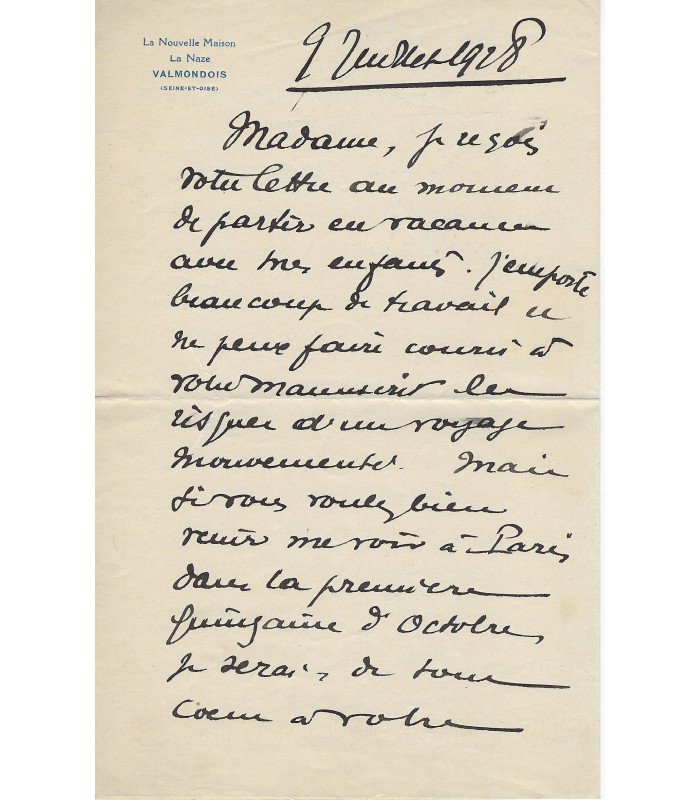 La Nouvelle Maison
La Naze
VALMONDOIS
(SEINE-ET-OISE)
9 Juillet 1928
Madame, je reçois
votre lettre au moment
de partir en vacances
avec mes enfants. J'emporte
beaucoup de travail et
ne peux faire courir à
votre manuscrit les
risques d'un voyage
mouvementé. Mais
si vous voulez bien
venir me voir à Paris,
dans la première
quinzaine d'Octobre,
je serai, de tout
coeur à votre